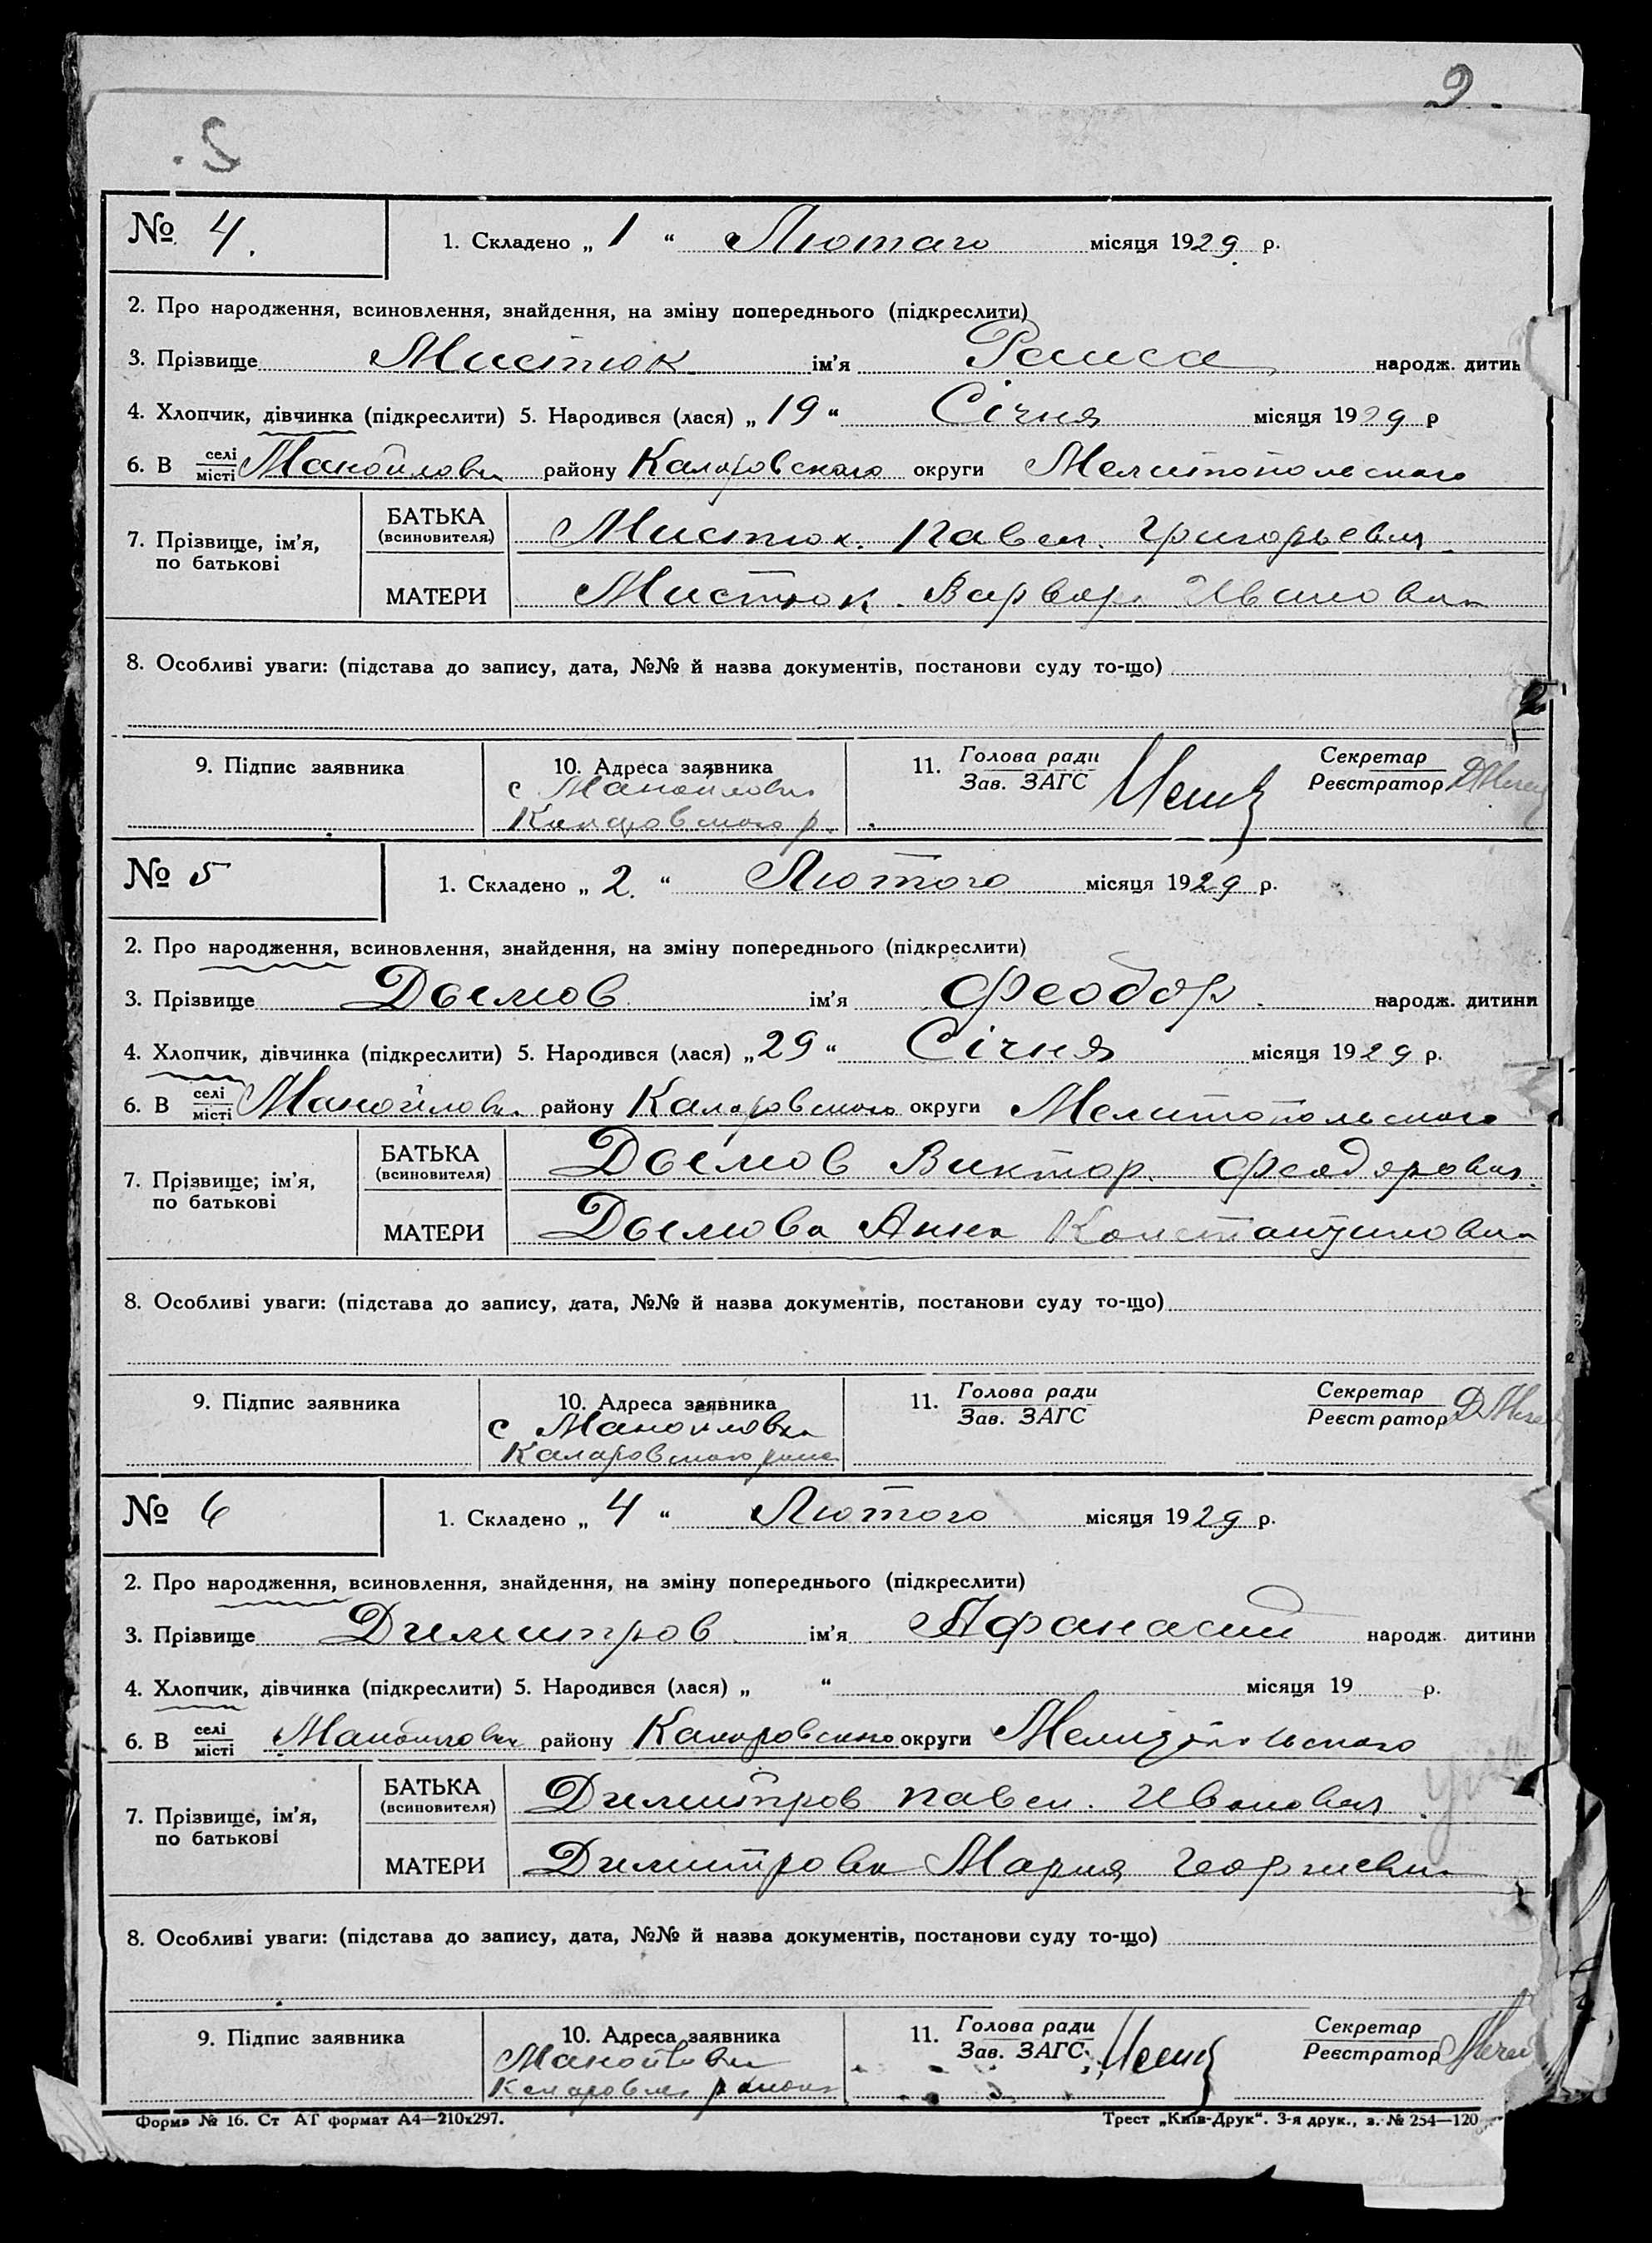 2.
№ 4. 1. Складено „ 1 “ Лютаго місяця 1929 р.
2. Про народження, всиновлення, знайдення, на зміну попереднього (підкреслити)
3. Прізвище Мистюк ім’я Раиса народж. дитин
4. Хлопчик, дівчинка (підкреслити) 5. Народився (лася) „ 19 “ Січня місяця 1929 р
6. В селі місті Манойловки району Каларовского округи Мелитопольского
7. Прізвище, ім’я, по батькові
БАТЬКА (всиновителя) Мистюк. Павел. Григорьевич.
МАТЕРИ Мистюк. Варвара Ивановна
8. Особливі уваги: (підстава до запису, дата, №№ й назва документів, постанови суду то-що)
9. Підпис заявника 10. Адреса заявника 11. Голова ради Зав. ЗАГС Секретар Реєстратор
с Манойловка
Каларовского р.
№ 5 1. Складено „ 2. “ Лютого місяця 1929 р.
2. Про народження, всиновлення, знайдення, на зміну попереднього (підкреслити)
3. Прізвище Дымов ім’я Феодор. народж. дитини
4. Хлопчик, дівчинка (підкреслити) 5. Народився (лася) „ 29 “ Січня місяця 1929 р.
6. В селі місті Манойловки району Каларовского округи Мелитопольского
7. Прізвище; ім’я, по батькові
БАТЬКА (всиновителя) Дымов Виктор. Феодорович.
МАТЕРИ Дымова Анна Константиновна
8. Особливі уваги: (підстава до запису, дата, №№ й назва документів, постанови суду то-що)
9. Підпис заявника 10. Адреса заявника 11. Голова ради Зав. ЗАГС Секретар Реєстратор
с Манойловка
Каларовского
№ 6 1. Складено „ 4 “ Лютого місяця 1929 р.
2. Про народження, всиновлення, знайдення, на зміну попереднього (підкреслити)
3. Прізвище Димитров ім’я Афанасий народж. дитини
4. Хлопчик, дівчинка (підкреслити) 5. Народився (лася) „ “ місяця 19 р.
6. В селі місті Манойловки району Каларовского округи Мелитопольского
7. Прізвище, ім’я, по батькові
БАТЬКА (всиновителя) Димитров Павел. Иванович.
МАТЕРИ Димитрова Мария Георгиевна
8. Особливі уваги: (підстава до запису, дата, №№ й назва документів, постанови суду то-що)
9. Підпис заявника 10. Адреса заявника 11. Голова ради Зав. ЗАГС Секретар Реєстратор
Манойловка
района
Форма № 16. Ст АТ формат А4—210х297. Трест „Київ-Друк“. 3-я друк., з. № 254—120